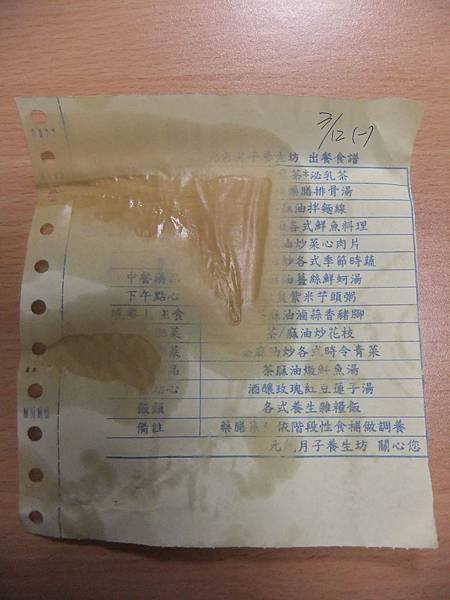 3/12 (一)
元氣月子養生坊 出餐食譜
茶*泌乳茶
膳排骨湯
麻油拌麵線
油各式鮮魚料理
油炒菜心肉片
油炒各式季節時蔬
中餐湯 油薑絲鮮蚵湯
下午點心 紫米芋頭粥
晚餐 主食 麻油滷蒜香豬腳
菜 茶/麻油炒花枝
茶麻油炒各式時令青菜
品 茶麻油燉鮮魚湯
點心 酒釀玫瑰紅豆蓮子湯
飯類 各式養生雜糧飯
備註 藥膳 依階段性食補做調養
元氣月子養生坊 關心您